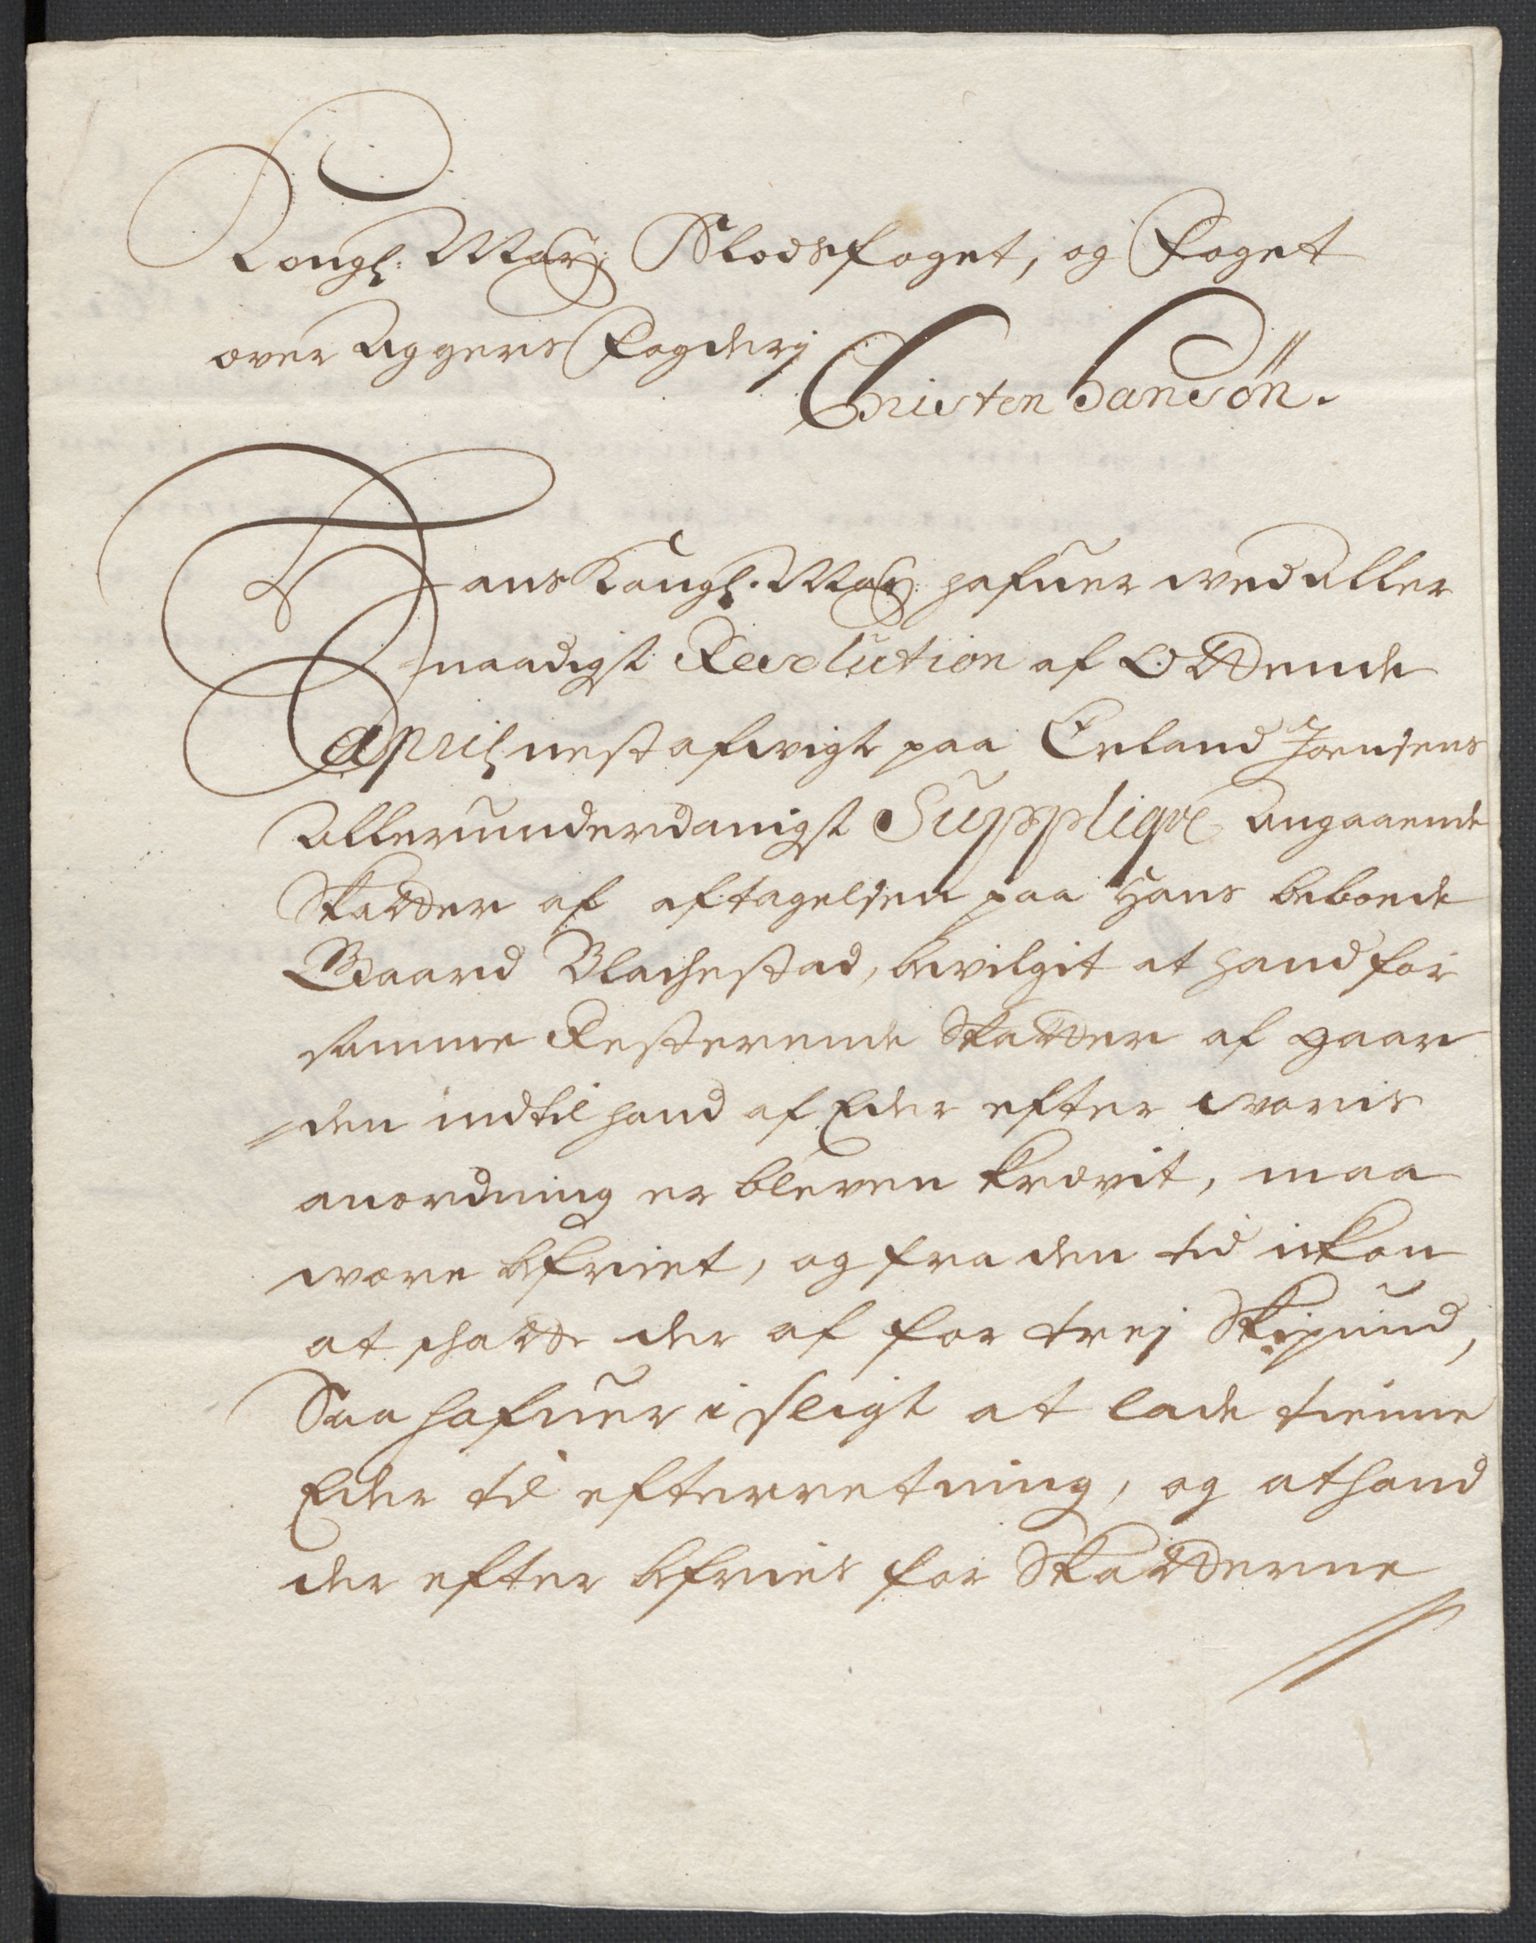 Kongl: May: Slodsfoget, og Foget
over Aggers Fogderj
Christen Hansøn.
Hans Kongl. May: hafuer wed Aller
naadigst Resolution af Ottende
April nest afwigt paa Erland Joensens
Allerunderdanigst Suppliqve Angaaende
Skatter af aftagelsen paa Hans beboede
Gaard Blachestad, bevilgit at hand for
samme Resterende Skatter af gaar
den indtil hand af Eder efter woris
anordning er bleven krævit, maa
være befriet, og fra den tid ickon
at schatte der af for trej Skipund,
Saa hafuer i sligt at lade tienne
Eder til efterretning, og at hand
der efter befries for Skatterne